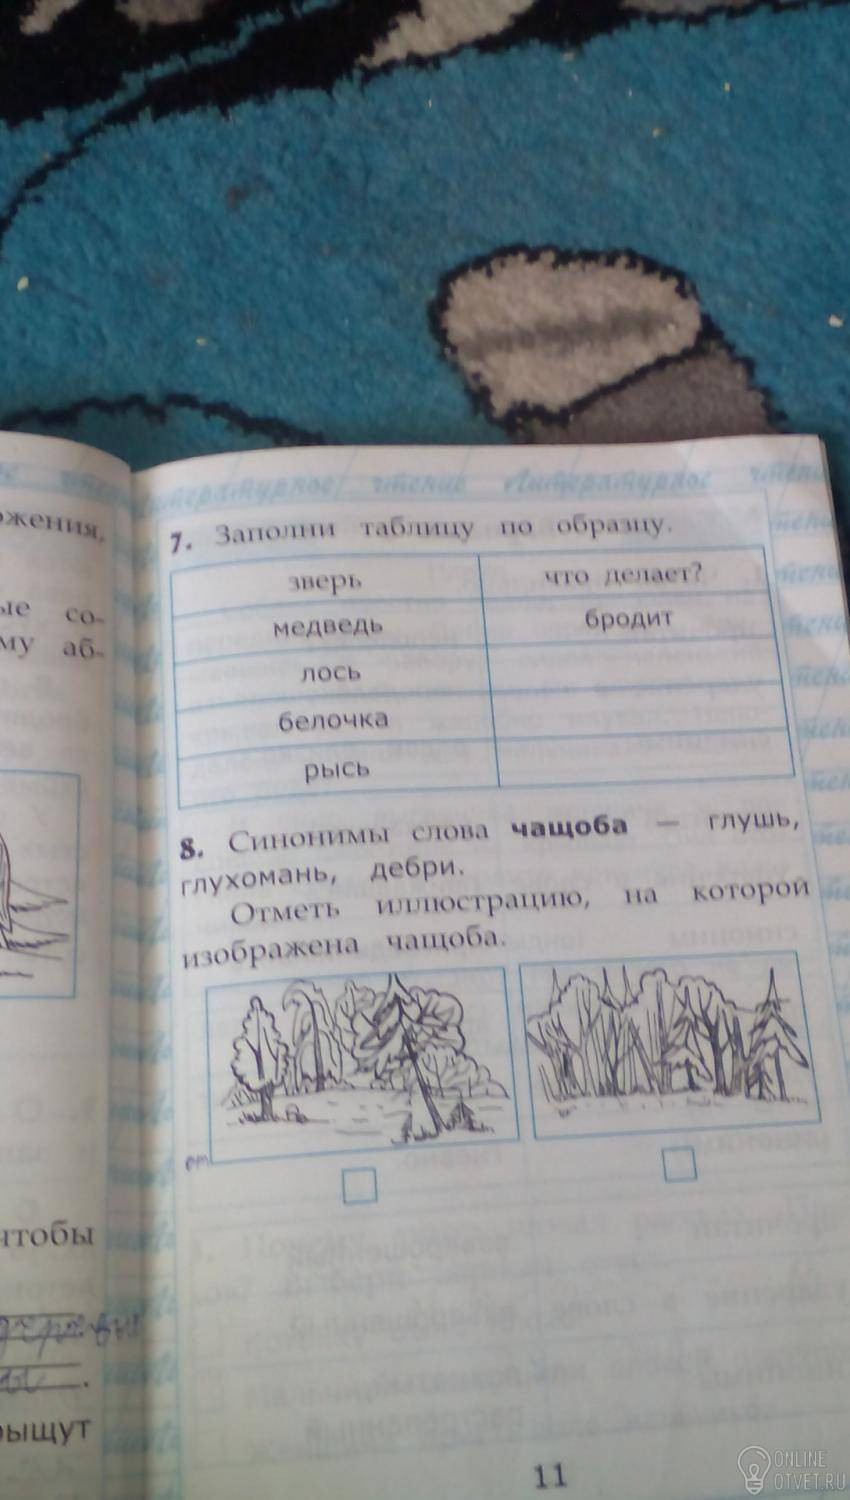 ожения,
ые со-
му аб-
чтобы
рыщут
Литературное чтение Литературное чтение
7. Заполни таблицу по образцу.
зверь что делает?
медведь бродит
лось
белочка
рысь
8. Синонимы слова чащоба — глушь,
глухомань, дебри.
Отметь иллюстрацию, на которой
изображена чащоба.
11
ONLINE
OTVET.RU